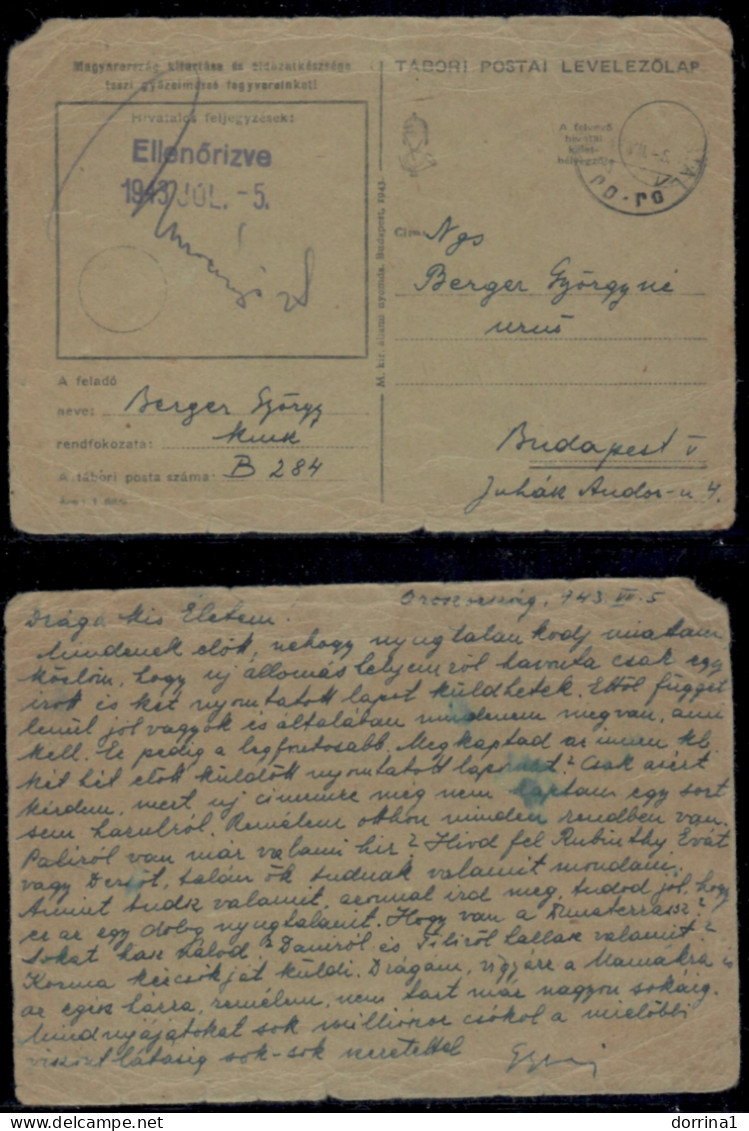 Magyarország kitartása és áldozatkészsége
teszi győzelmessé fegyvereinket!
Hivatalos feljegyzések:
Ellenőrizve
1943 JÚL. -5.
A feladó
neve: Berger György
rendfokozata: Musz
A tábori posta száma: B 284
TÁBORI POSTAI LEVELEZŐLAP
A felvevő
hivatal
kelet-
bélyegzője
M. kir. állami nyomda, Budapest, 1943.
Cím: Ngs
Berger Györgyné
urnő
Budapest V
Juhák Andor-u 4.
Oroszország, 943 VII. 5
Drága Kis Életem.
Mindenek előtt, nehogy nyugtalankodj miattam
közlöm, hogy új állomáshelyemről havonta csak egy
írott és két nyomtatott lapot küldhetek. Ettől függet
lenül jól vagyok és általában mindenem megvan, ami
kell. Ez pedig a legfontosabb. Megkaptad az innen kb.
két hét előtt küldött nyomtatott lapomat? Csak azért
kérdem, mert új címemre még nem kaptam egy sort
sem hazulról. Remélem otthon minden rendben van.
Paliról van már valami hír? Hívd fel Rubinthy Évát
vagy Dezsőt, talán ők tudnak valamit mondani.
Amint tudsz valamit, azonnal írd meg, tudod jól, hogy
ez az egy dolog nyugtalanít. Hogy van a Dunaterrasz?
Sokat hasznlod? Daniról és Filiről hallasz valamit?
Kozma kézcsókját küldi. Drágám, vigyázz a Mamákra és
az egész házra, remélem, nem tart már nagyon sokáig.
Mindnyájatokat sok milliószor csókol a mielőbbi
viszontlátásig sok-sok szeretettel
dorrina1